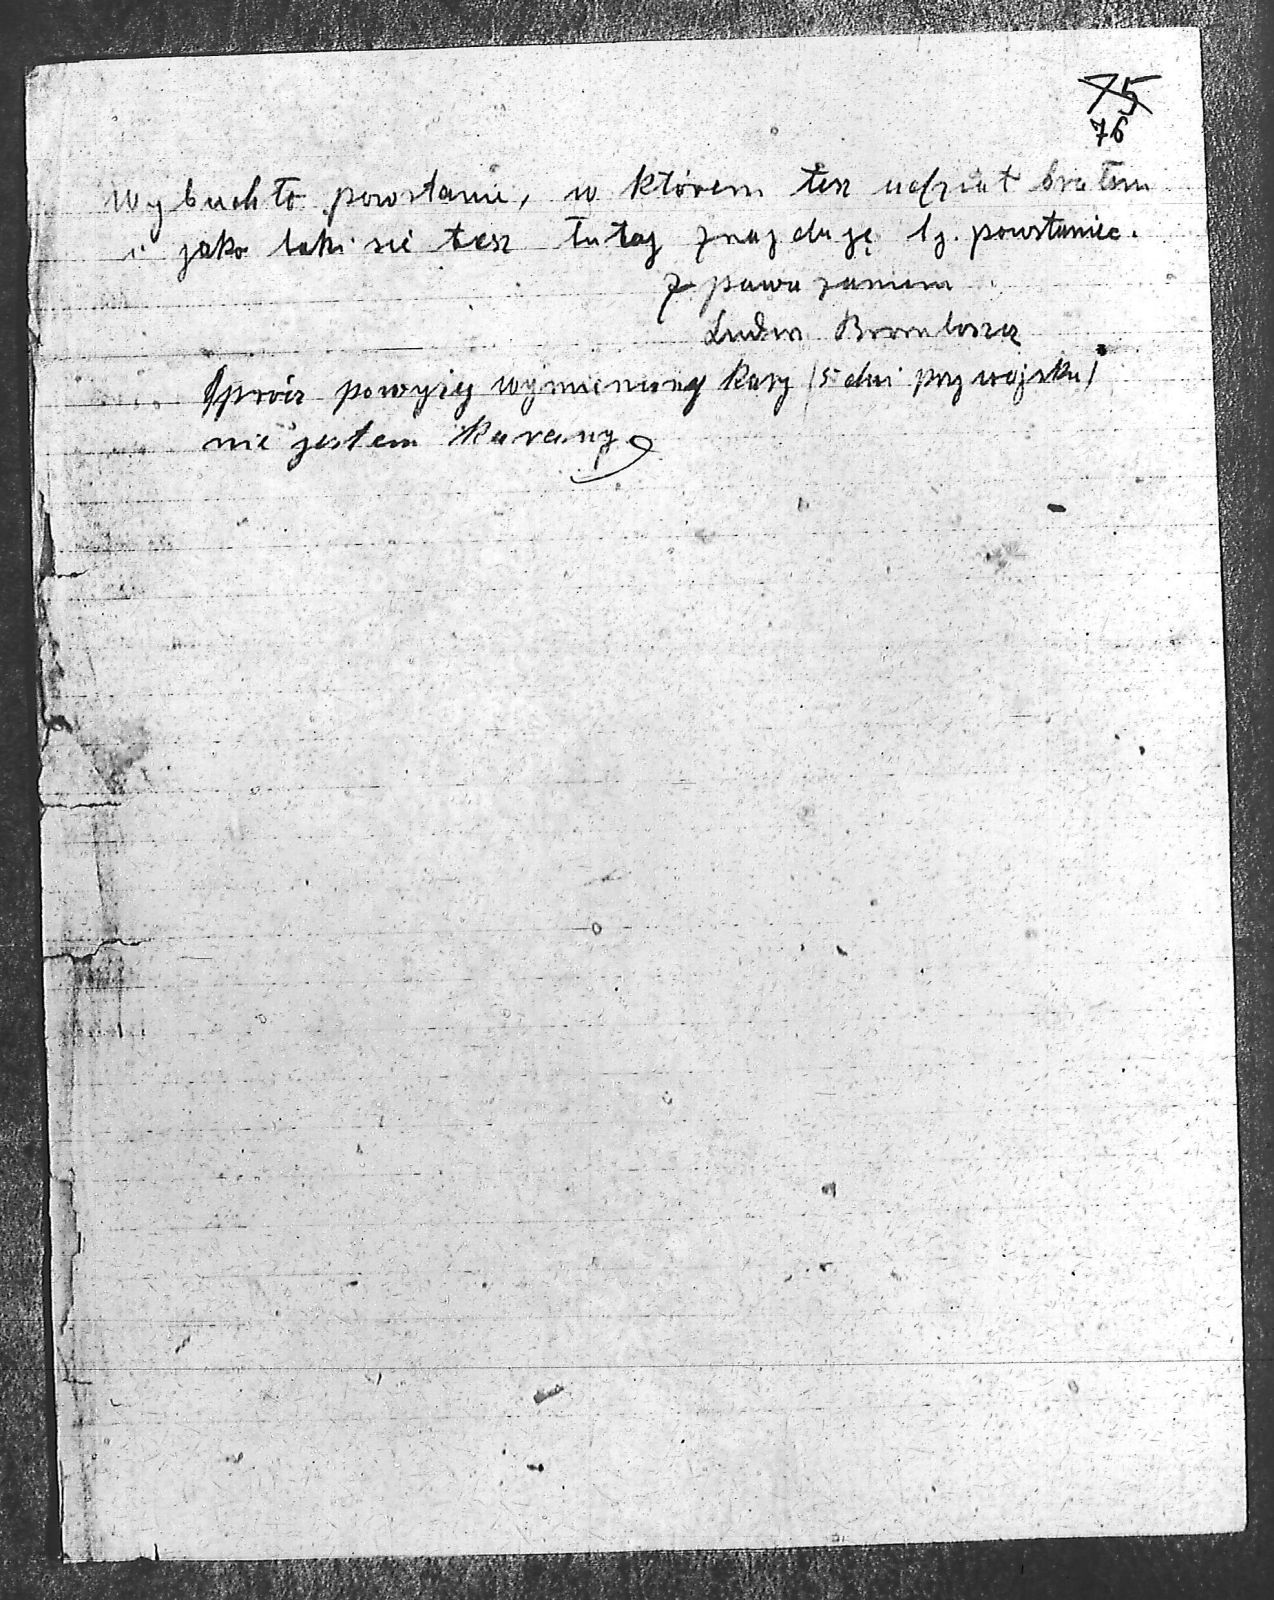 75
76
Wybuchło powstanie, w którem tesz udział brałem
i jako taki sie tesz tutaj znajduję tz. powstaniec.
Z powarzaniem
Ludwi
Oprócz powyżej wymienionej kary /5 dni przy wojsku/
nie jestem karany